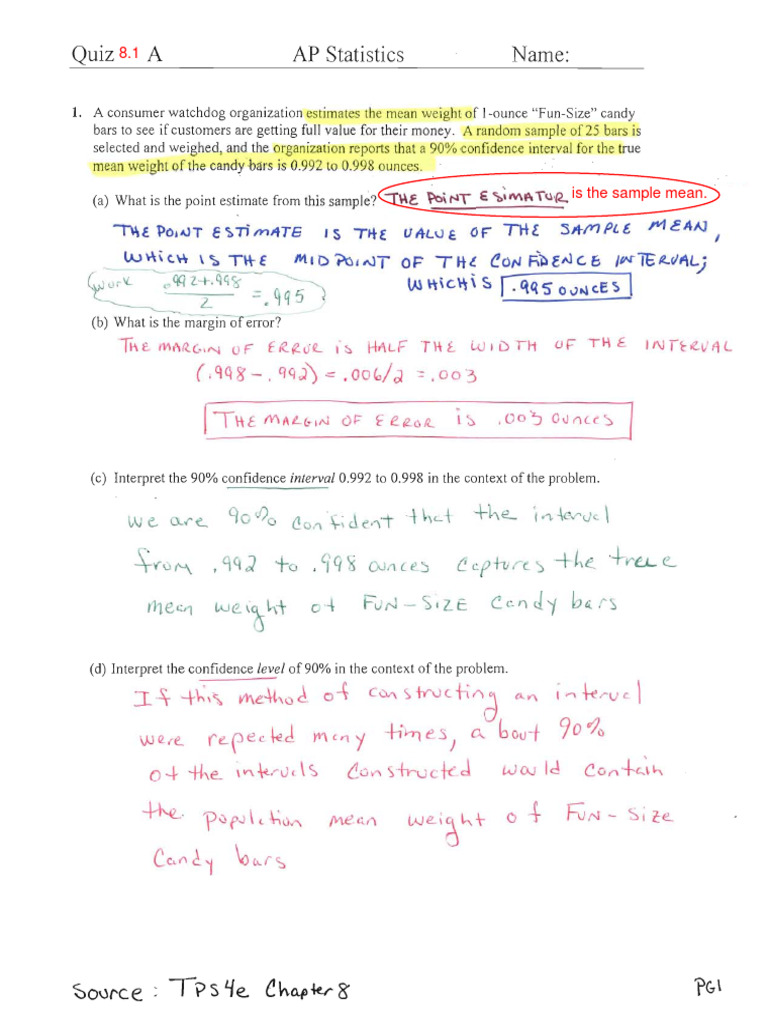 Quiz 8.1 A AP Statistics Name:
1. A consumer watchdog organization estimates the mean weight of 1-ounce “Fun-Size” candy
bars to see if customers are getting full value for their money. A random sample of 25 bars is
selected and weighed, and the organization reports that a 90% confidence interval for the true
mean weight of the candy bars is 0.992 to 0.998 ounces.
(a) What is the point estimate from this sample? THE POINT ESIMATOR is the sample mean.
THE POINT ESTIMATE IS THE VALUE OF THE SAMPLE MEAN,
WHICH IS THE MIDPOINT OF THE CONFIDENCE INTERVAL;
WHICH IS .995 OUNCES
work .992+.998 / 2 = .995
(b) What is the margin of error?
THE MARGIN OF ERROR IS HALF THE WIDTH OF THE INTERVAL
(.998 - .992) = .006/2 = .003
THE MARGIN OF ERROR IS .003 OUNCES
(c) Interpret the 90% confidence interval 0.992 to 0.998 in the context of the problem.
we are 90% confident that the interval
from .992 to .998 ounces captures the true
mean weight of FUN-SIZE candy bars
(d) Interpret the confidence level of 90% in the context of the problem.
If this method of constructing an interval
were repected many times, about 90%
of the intervals constructed would contain
the population mean weight of FUN-SIZE
Candy bars
Source: TPS4e Chapter 8 PG1